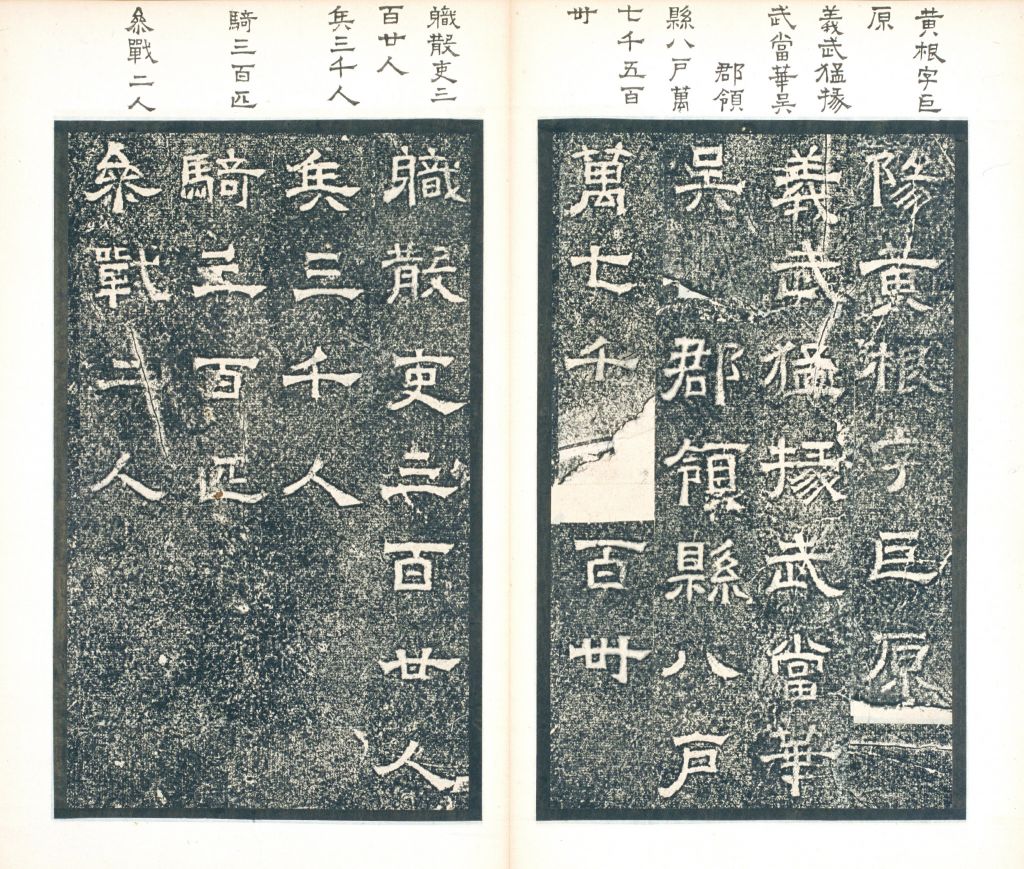 黃根字巨
原
義武猛掾
武當華吳
郡領
縣八戶萬
七千五百
卌
陽黃根字巨原
義武猛掾武當華
吳 郡領縣八戶
萬七千 百卌
軄散吏三
百廿人
兵三千人
騎三百匹
參戰二人
軄散吏三百廿人
兵三千人
騎三百匹
參戰二人